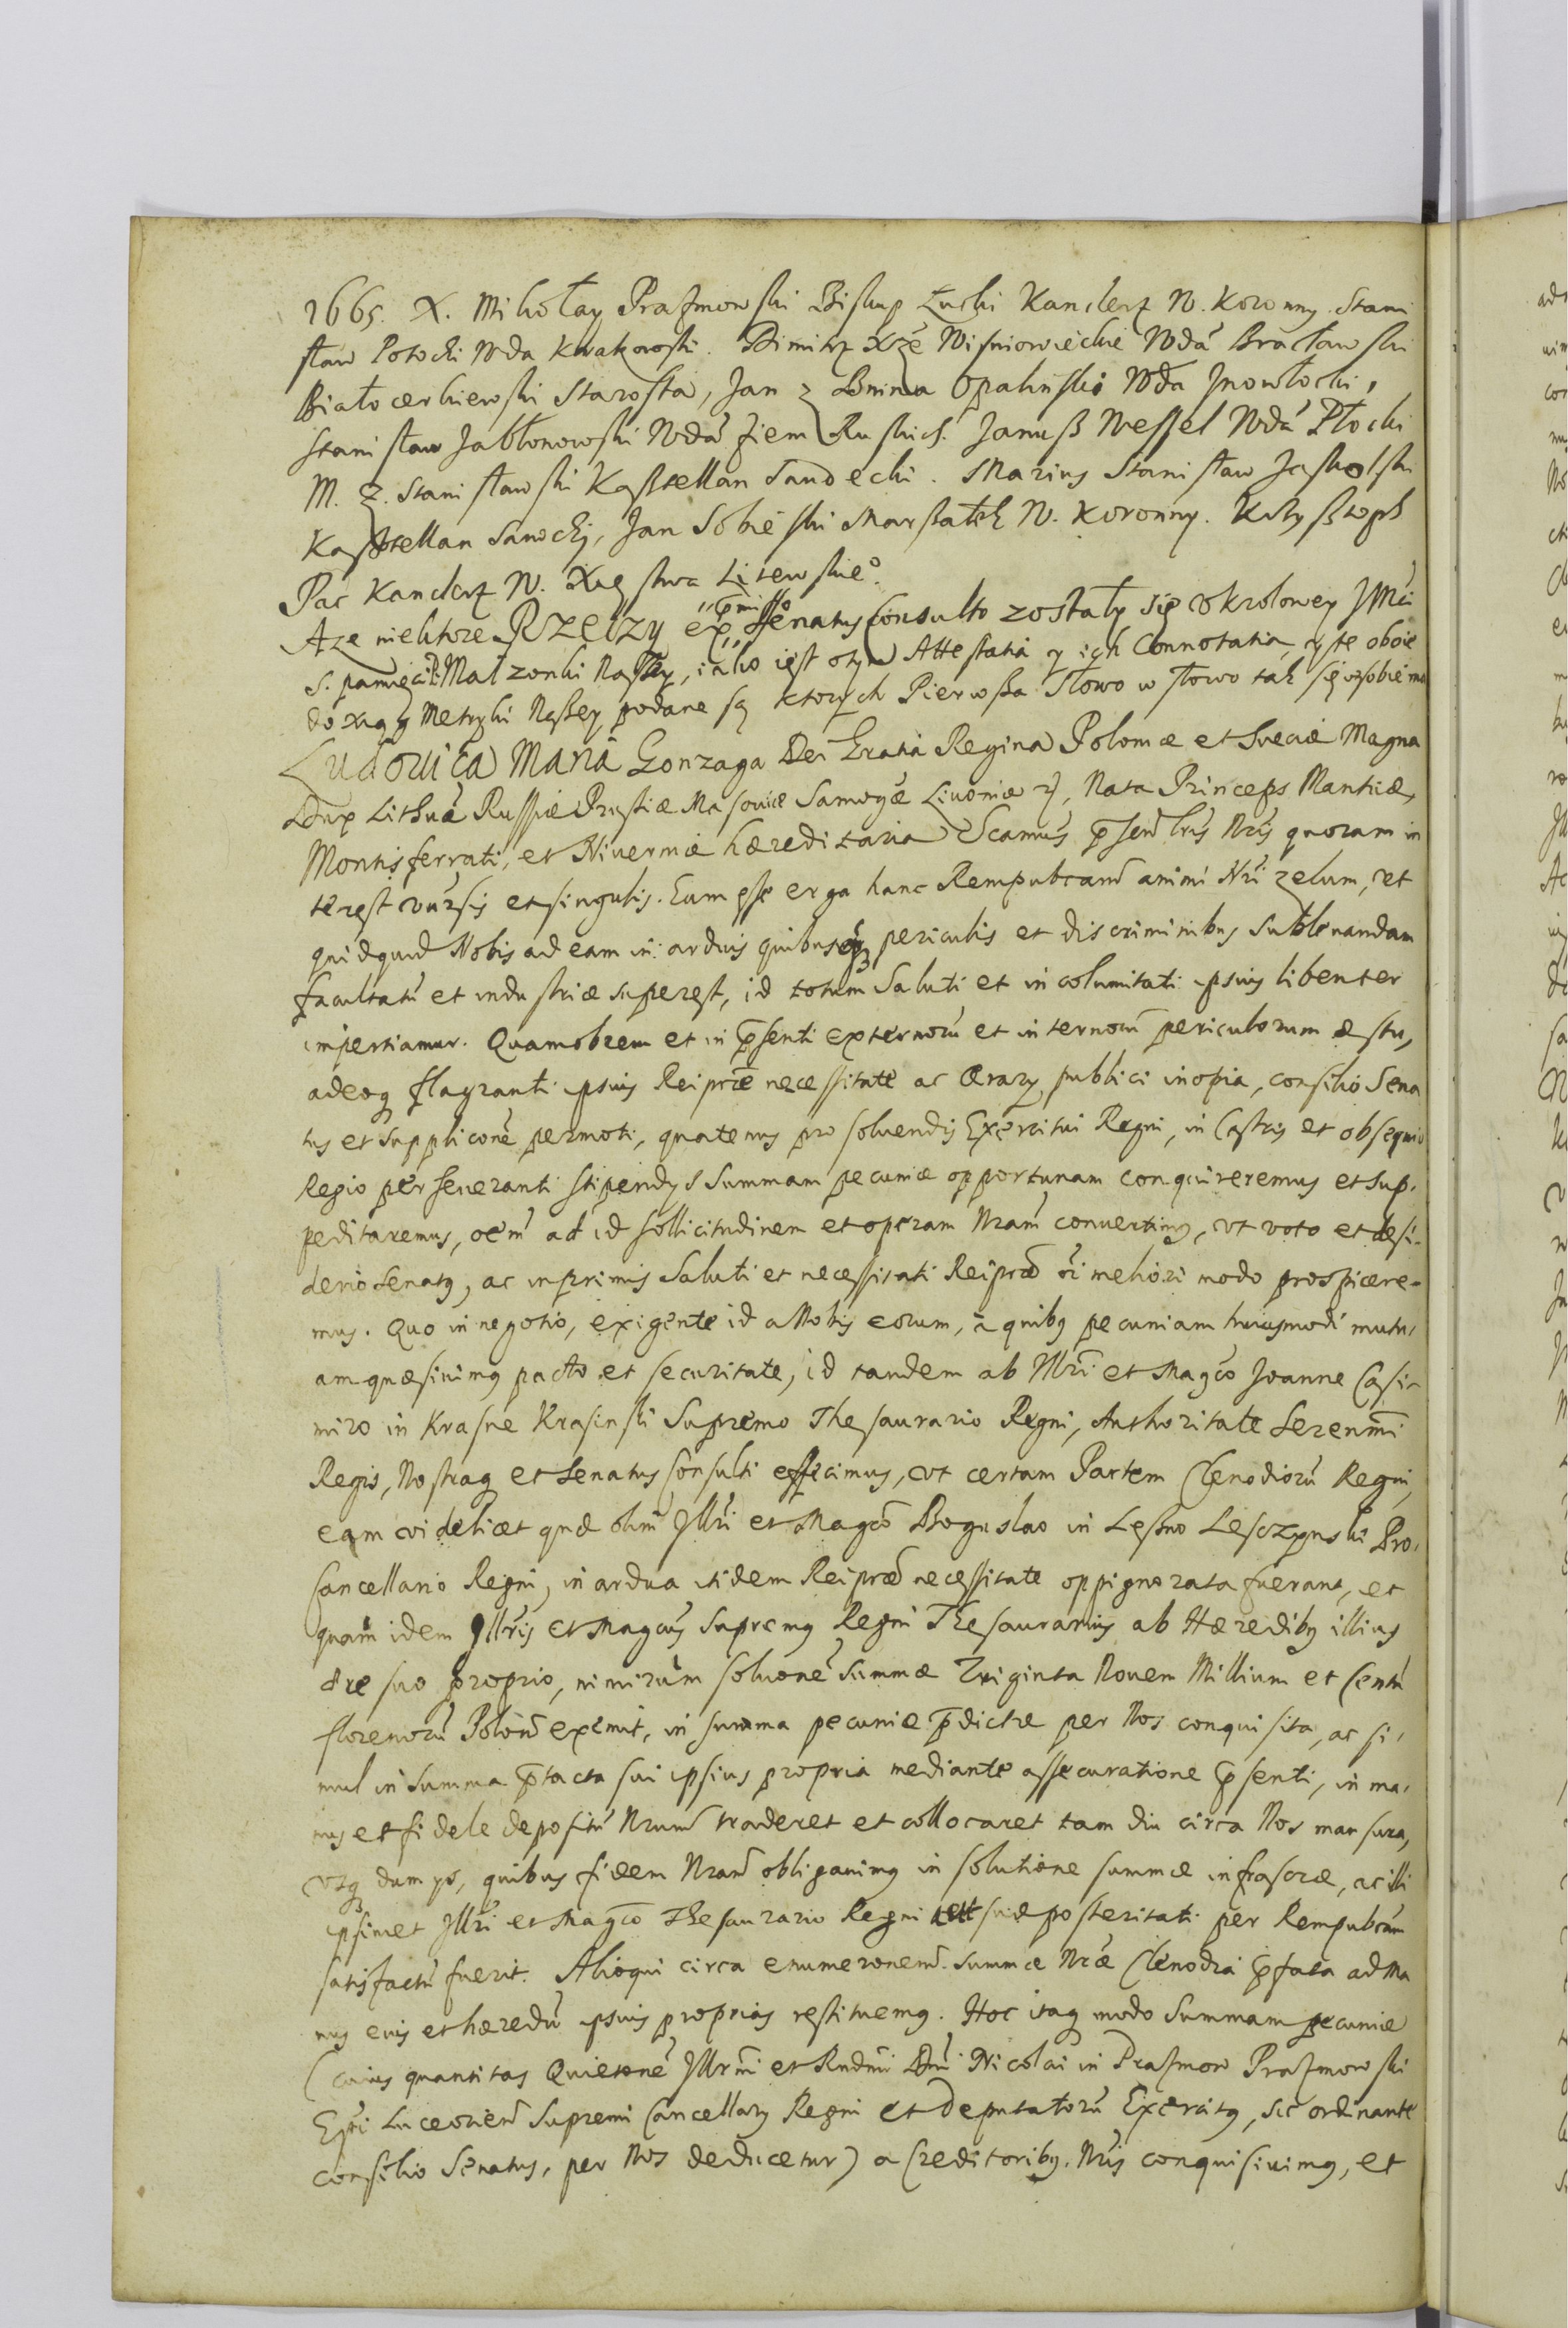 1665. X. Mikołay Prażmowski Biskup Łucki Kanclerz W. Koronny. Stani
sław Potocki Wda Krakowski. Dimitr Xżę Wisniowieckie Wdá Bracławski
Białocerkiewski Starosta, Jan z Bnina Opaliński Wda Jnowłocki,
Stanisław Jabłonowski Wdá ziem Ruskich. Janusz Wessel Wdá Płocki
M. z. Stanisławski Kasztellan Sandecki. Marius Stanisław Jaskolski
Kasztellan Sanocki, Jan Sobieski Marszałek W. Koronny. Krzysztoph
Pac Kanclerz W. Xięstwa Litewskieº.
Aze niektore Rzeczy ex pmisso Senatus Consulto zostały się v krolowey JMci
S. pamięci Małzonki Naszey, iako iest otym Attestatia y ich Connotatia, y te oboie
do xiąg Metryki Naszey podane są ktorych Pierwsza Słowo w słowo tak się w sobie ma
Ludouica Maria Gonzaga Dei Gratia Regina Poloniæ et Sueciæ Magna
Dux Lithuæ Russiæ Prussiæ Masouiæ Samogæ Liuoniæ, Nata Princeps Mantuæ,
Montisferrati, et Niuerniæ hæreditaria Scamus psentibus lris Nris quorum in
terest vnrsis et singulis. Eum esse erga hanc Rempubcam animi Nri zelum, vt
quidquid Nobis ad eam in arduis quibusq periculis et discriminibus subleuandam
facultatũ et industriæ superest, id totum Saluti et incolumitati ipsius libenter
impertiamur. Quamobrem et in psenti externorũ et internorũ periculorum æstu,
adeoq flagranti ipsius Reiprcæ necessitate ac ærary publici inopia, consilio Sena
tus et supplicone permoti, quatenus pro soluendis Exercitui Regni, in Castris et obsequio
Regio perseueranti stipendys summam pecuniæ opportunam conquireremus et sup.
peditaremus, oem ad id sollicitudinem et operam Nram conuertimus, vt voto et desi-
derio Senatus, ac inprimis Saluti et necessitati Reiprcæ oi meliori modo prospicere-
mus. Quo in negotio, exigente id a Nobis eorum, à quibus pecuniam huiusmodi mutu,
am quæsiuimus pacto et securitate, id tandem ab Jllri et Magco Joanne Casi-
miro in Krasne Krasinski Supremo Thesaurario Regni, Authoritate Serenmi
Regis, Nostraq et Senatus Consulti effecimus, vt certam Partem Clenodiorũ Regni,
eam videlicet quæ olim Jllri et Magco Boguslao in Leszno Lesczynski Pro,
Cancellario Regni, in ardua itidem Reiprcæ necessitate oppignorata fuerant, et
quam idem Jllris et Magcus Supremus Regni Thesaurarius ab Hæredibus illius
ære suo proprio, nimirum solutone Summæ Triginta Nouem Millium et Centũ
florenorũ Polon exemit, in summa pecuniæ pdictæ per Nos conquisita, ac si,
mul in summa ptacta sui ipsius propria mediante assecuratione psenti, in ma,
nus et fidele depositũ Nrum traderet et collocaret tam diu circa Nos mansura,
vsq dum ys, quibus fidem Nram obligauimus in solutione summæ infrascræ, ac illi
ipsimet Jllri et Magco Thesaurario Regni suæ posteritati per Rempubcam
satisfactũ fuerit. Alioqui circa enumeronem summæ Nræ Clenodia pfata ad Ma
nus eius et hæredũ ipsius proprias restituemus. Hoc itaq modo Summam pecuniæ
(cuius quantitas Quietone Jllrmi et Rndmi Dni Nicolai in Prażmow Prażmowski
Epi Luceorien Supremi Cancellary Regni et Deputatorũ Exercitus, sic ordinante
consilio Senatus, per Nos deducetur) a Creditoribus Nris conquisiuimus, et